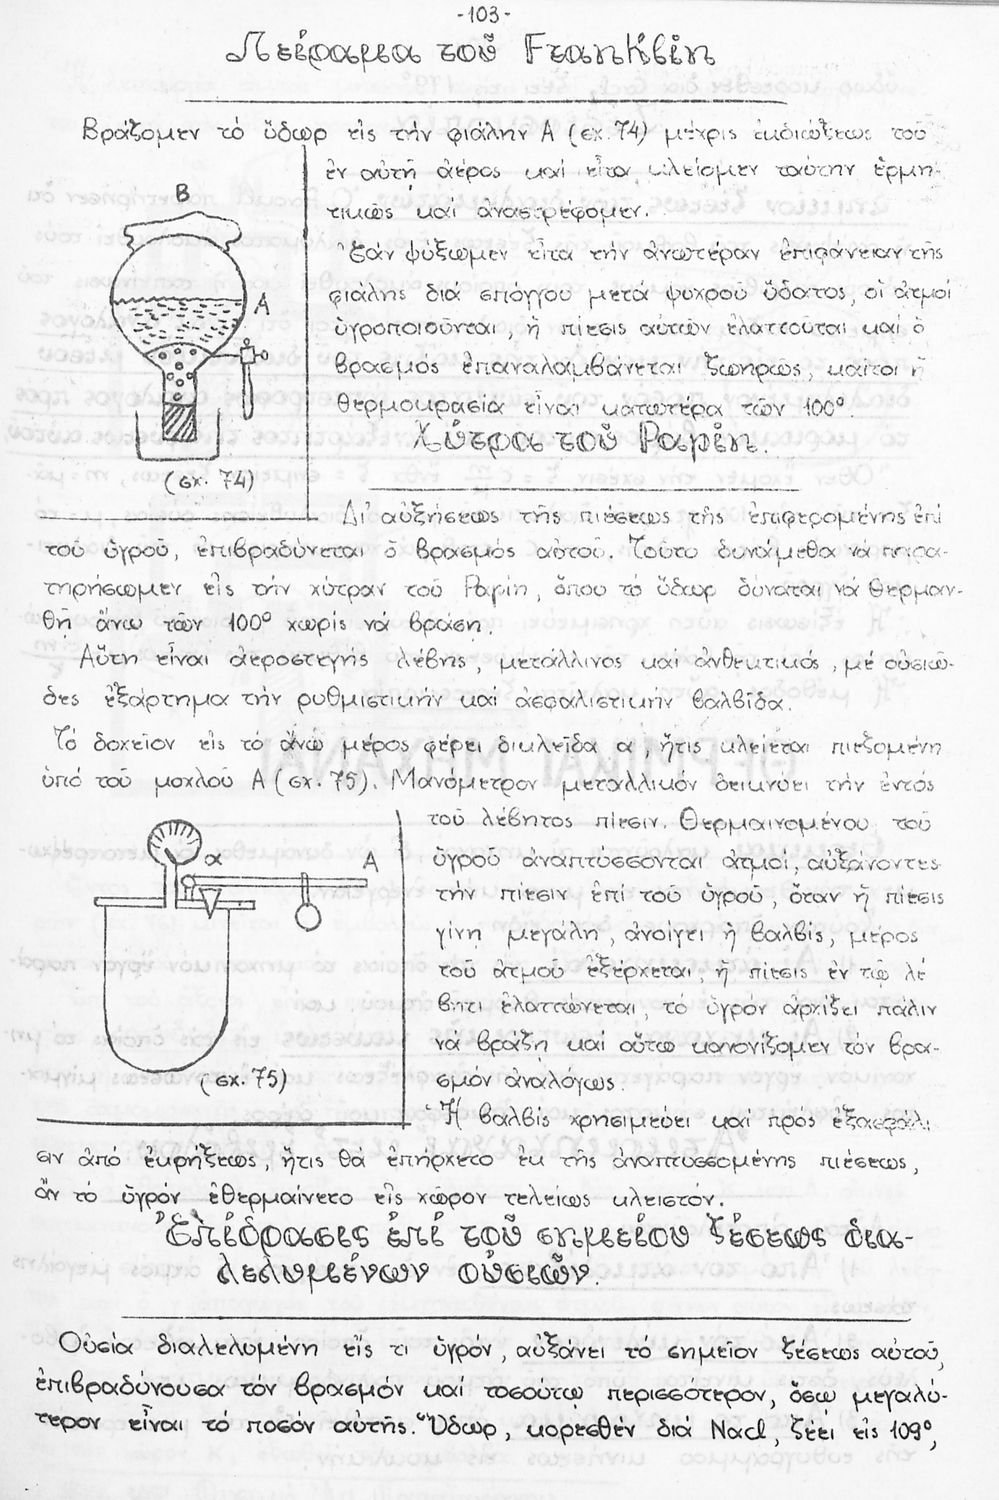 -103-
Πείραμα τοῦ Franklin
Βράζομεν τό ὕδωρ εἰς τήν φιάλην Α (σχ. 74) μέχρις ἐκδιώξεως τοῦ
ἐν αὐτῇ ἀέρος καί εἶτα κλείομεν ταύτην ἑρμη-
τικῶς καί ἀναστρέφομεν.
Ἐάν ψύξωμεν εἶτα τήν ἀνωτέραν ἐπιφάνειαν τῆς
φιάλης διά σπόγγου μετά ψυχροῦ ὕδατος, οἱ ἀτμοί
ὑγροποιοῦνται, ἡ πίεσις αὐτῶν ἐλαττοῦται καί ὁ
βρασμός ἐπαναλαμβάνεται ζωηρῶς, καίτοι ἡ
θερμοκρασία εἶναι κατωτέρα τῶν 100°.
Β
Α
(σχ. 74)
Χύτρα τοῦ Papin.
Δι' αὐξήσεως τῆς πιέσεως τῆς ἐπιφερομένης ἐπί
τοῦ ὑγροῦ, ἐπιβραδύνεται ὁ βρασμός αὐτοῦ. Τοῦτο δυνάμεθα νά παρα-
τηρήσωμεν εἰς τήν χύτραν τοῦ Papin, ὅπου τό ὕδωρ δύναται νά θερμαν-
θῇ ἄνω τῶν 100° χωρίς νά βράσῃ.
Αὕτη εἶναι ἀεροστεγής λέβης, μετάλλινος καί ἀνθεκτικός, μέ οὐσιῶ-
δες ἐξάρτημα τήν ρυθμιστικήν καί ἀσφαλιστικήν βαλβῖδα.
Τό δοχεῖον εἰς τό ἄνω μέρος φέρει δικλεῖδα α, ἥτις κλείεται πιεζομένη
ὑπό τοῦ μοχλοῦ Α (σχ. 75). Μανόμετρον μεταλλικόν δεικνύει τήν ἐντός
τοῦ λέβητος πίεσιν. Θερμαινομένου τοῦ
ὑγροῦ ἀναπτύσσονται ἀτμοί, αὐξάνοντες
τήν πίεσιν ἐπί τοῦ ὑγροῦ, ὅταν ἡ πίεσις
γίνῃ μεγάλη, ἀνοίγει ἡ βαλβίς, μέρος
τοῦ ἀτμοῦ ἐξέρχεται, ἡ πίεσις ἐν τῷ λέ
βητι ἐλαττώνεται, τό ὑγρόν ἀρχίζει πάλιν
νά βράζῃ καί οὕτω κανονίζομεν τόν βρα-
σμόν ἀναλόγως.
α
Α
(σχ. 75)
Ἡ βαλβίς χρησιμεύει καί πρός ἐξασφάλι
σιν ἀπό ἐκρήξεως, ἥτις θά ἐπήρχετο ἐκ τῆς ἀναπτυσσομένης πιέσεως,
ἄν τό ὑγρόν ἐθερμαίνετο εἰς χῶρον τελείως κλειστόν.
Ἐπίδρασις ἐπί τοῦ σημείου ζέσεως δια-
λελυμένων οὐσιῶν.
Οὐσία διαλελυμένη εἴς τι ὑγρόν, αὐξάνει τό σημεῖον ζέσεως αὐτοῦ,
ἐπιβραδύνουσα τόν βρασμόν καί τοσούτῳ περισσότερον, ὅσῳ μεγαλύ-
τερον εἶναι τό ποσόν αὐτῆς. Ὕδωρ, κορεσθέν διά Nacl, ζέει εἰς 109°,